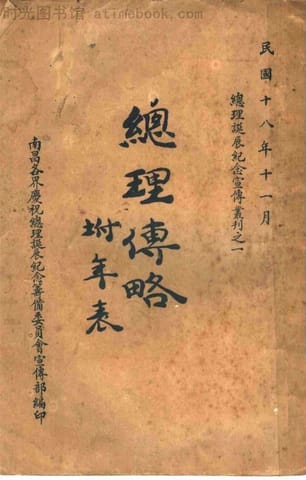 时光图书馆 - atimebook.com
民國十八年十一月
總理誕辰紀念宣傳叢刊之一
總理傳略
坿年表
南昌各界慶祝總理誕辰紀念籌備委員會宣傳部編印